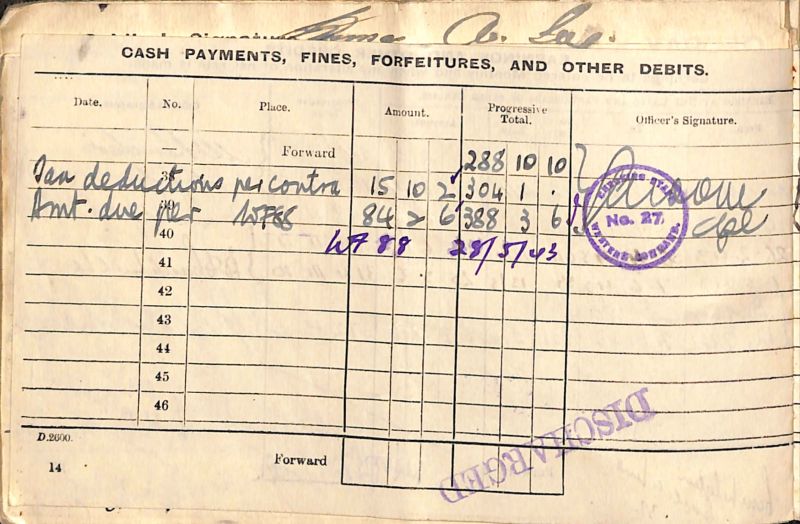 CASH PAYMENTS, FINES, FORFEITURES, AND OTHER DEBITS.
Date. No. Place. Amount. Progressive Total. Officer's Signature.
— Forward 288 10 10
38 Tax deductions per contra 15 10 2 304 1 .
39 Amt. due per WF88 84 2 6 388 3 6 Cpl
CHECKING STAFF No. 27. WESTERN COMMAND.
40 WF 88 28/5/43
41
42
43
44
45
46
DISCHARGED
D.2600.
14 Forward